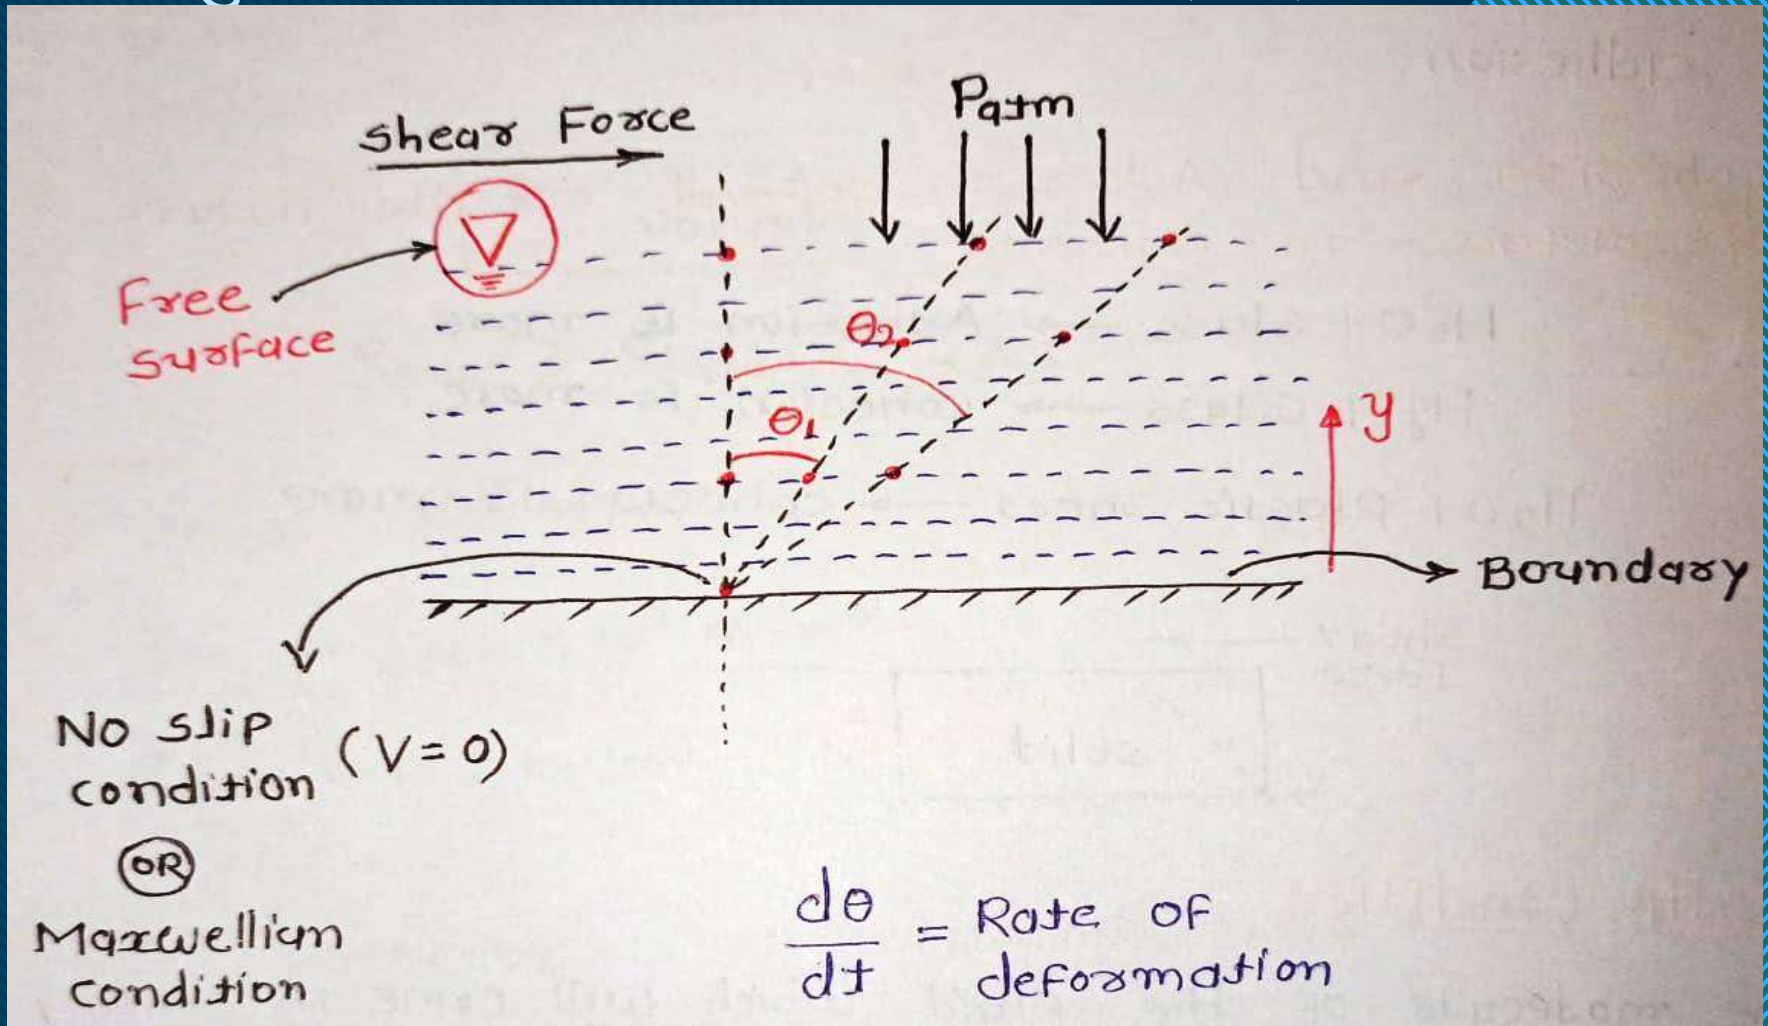 Shear Force
Patm
Free
surface
θ2
θ1
y
Boundary
No slip
condition (V=0)
OR
Maxwellian
condition
dθ
dt
= Rate of
deformation